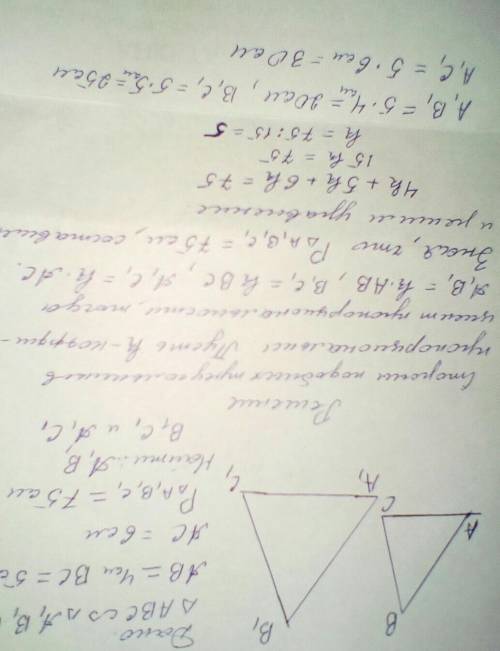 Дано:
△ABC ∽ △A₁B₁
AB = 4см BC = 5с
AC = 6см
P△A₁B₁C₁ = 75см
Найти: A₁B₁
B₁C₁ и A₁C₁
B
A
C
B₁
A₁
C₁
Решение
Стороны подобных треугольников
пропорциональны. Пусть k-коэффи-
циент пропорциональности, тогда
A₁B₁ = k·AB, B₁C₁ = k BC, A₁C₁ = k·AC.
Зная, что P△A₁B₁C₁ = 75см, составим
и решим уравнение
4k + 5k + 6k = 75
15k = 75
k = 75:15 = 5
A₁B₁ = 5·4см = 20см, B₁C₁ = 5·5см = 25см
A₁C₁ = 5·6см = 30см